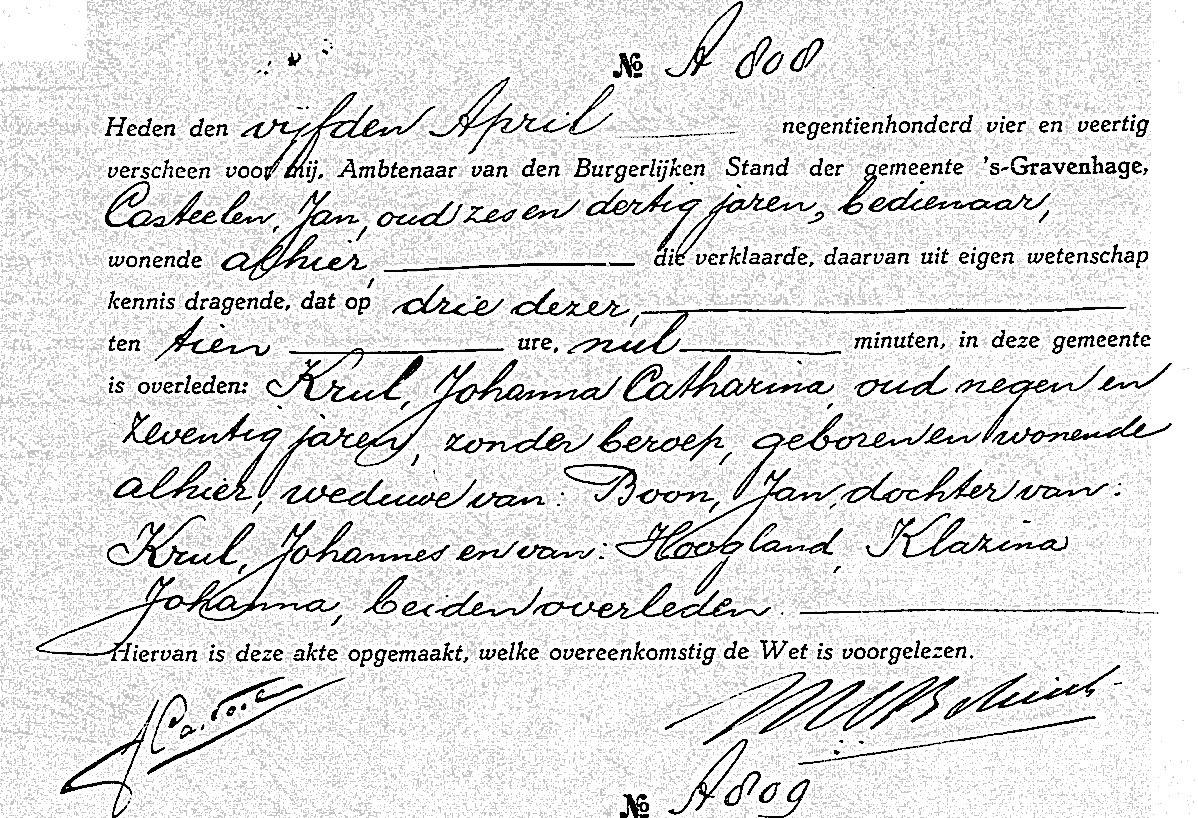 № A 808
Heden den vijfden April negentienhonderd vier en veertig
verscheen voor mij, Ambtenaar van den Burgerlijken Stand der gemeente 's-Gravenhage,
Casteelen, Jan, oud zes en dertig jaren, bedienaar,
wonende alhier, die verklaarde, daarvan uit eigen wetenschap
kennis dragende, dat op drie dezer,
ten tien ure, nul minuten, in deze gemeente
is overleden: Krul, Johanna Catharina, oud negen en
zeventig jaren, zonder beroep, geboren en wonende
alhier, weduwe van: Boon, Jan, dochter van:
Krul, Johannes en van: Hoogland, Klazina
Johanna, beiden overleden.
Hiervan is deze akte opgemaakt, welke overeenkomstig de Wet is voorgelezen.
№ A 809